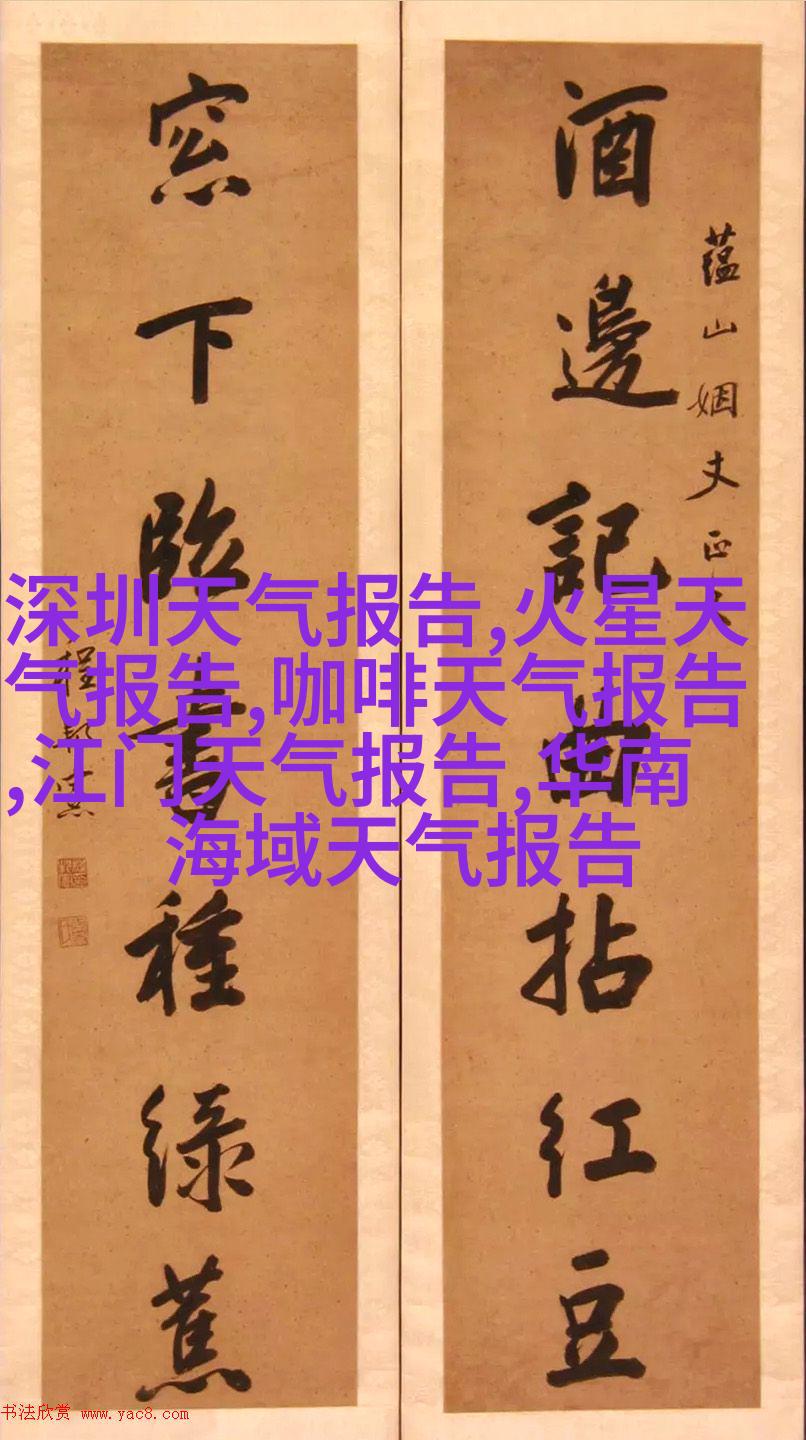 酒邊記曲拈紅豆
蘊山姻丈正
窓下臨書種緑蕉
程
深圳天气报告,火星天
气报告,咖啡天气报告
,江门天气报告,华南
海域天气报告
书法欣赏 www.yac8.com